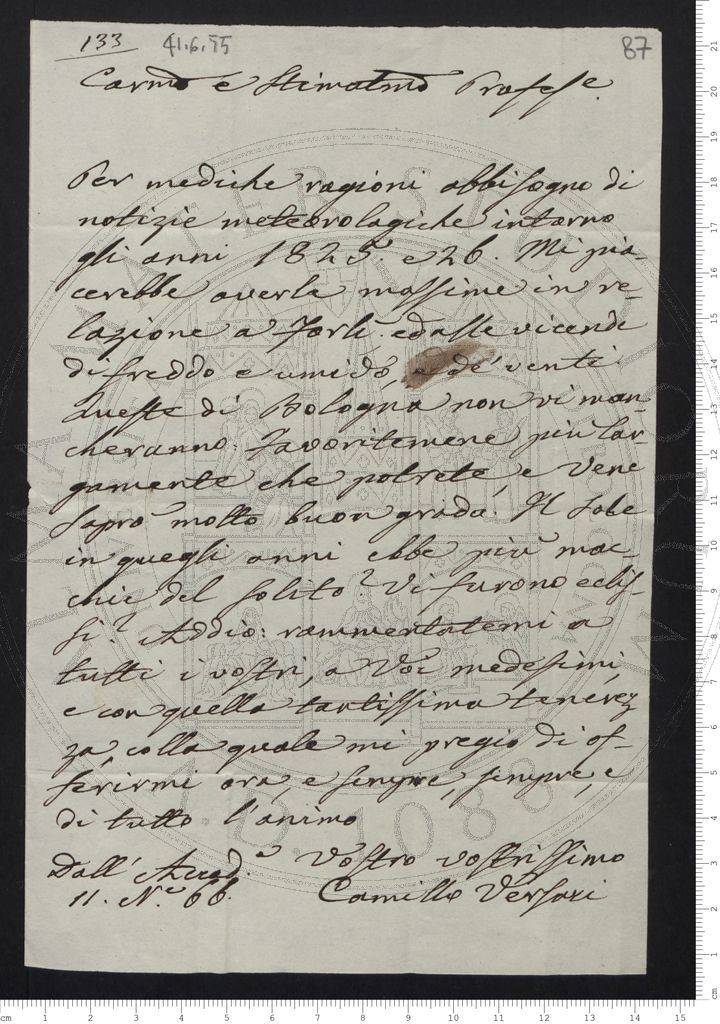 133 41.6.55 87
Carmo e Stimatmo Profess.e
Per mediche ragioni abbisogno di
notizie meteorologiche intorno
gli anni 1825. e 26. Mi pia-
cerebbe averle massime in re-
lazione a Forlì. ed alle vicende
di freddo e umido, e de' venti
Queste di Bologna non vi man-
cheranno. Favoritemene più lar-
gamente che potrete, e Vene
saprò molto buon grado. Il Sole
in quegli anni ebbe più mac-
chie del solito? Vi furono eclis-
si? Addio: rammentatemi a
tutti i vostri, a Voi medesimi,
e con quella tantissima tenerez
za, colla quale mi pregio di of-
ferirmi ora, e sempre, sempre, e
di tutto l'animo
Vostro vostrissimo
Dall' Accad.a
11. N.e 66. Camillo Versari